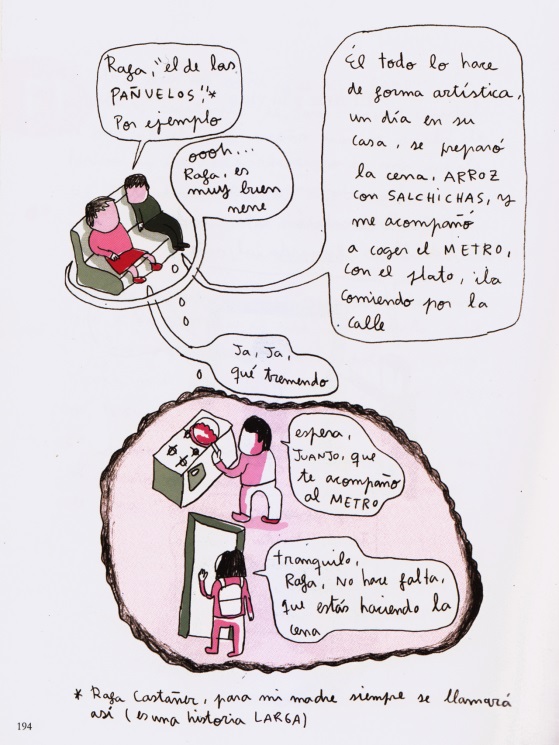 Rafa, "el de los
PAÑUELOS,"*
Por ejemplo
oooh...
Rafa, es
muy buen
nene
Él todo lo hace
de forma artística,
un día en su
casa, se preparó
la cena, ARROZ
con SALCHICHAS, y
me acompañó
a coger el METRO,
con el plato, iba
comiendo por la
calle
Ja, Ja,
qué tremendo
espera,
JUANJO, que
te acompaño
al METRO
tranquilo,
Rafa, no hace falta,
que estás haciendo la
cena
* Rafa Castañer, para mi madre siempre se llamará
así (es una historia LARGA)
194